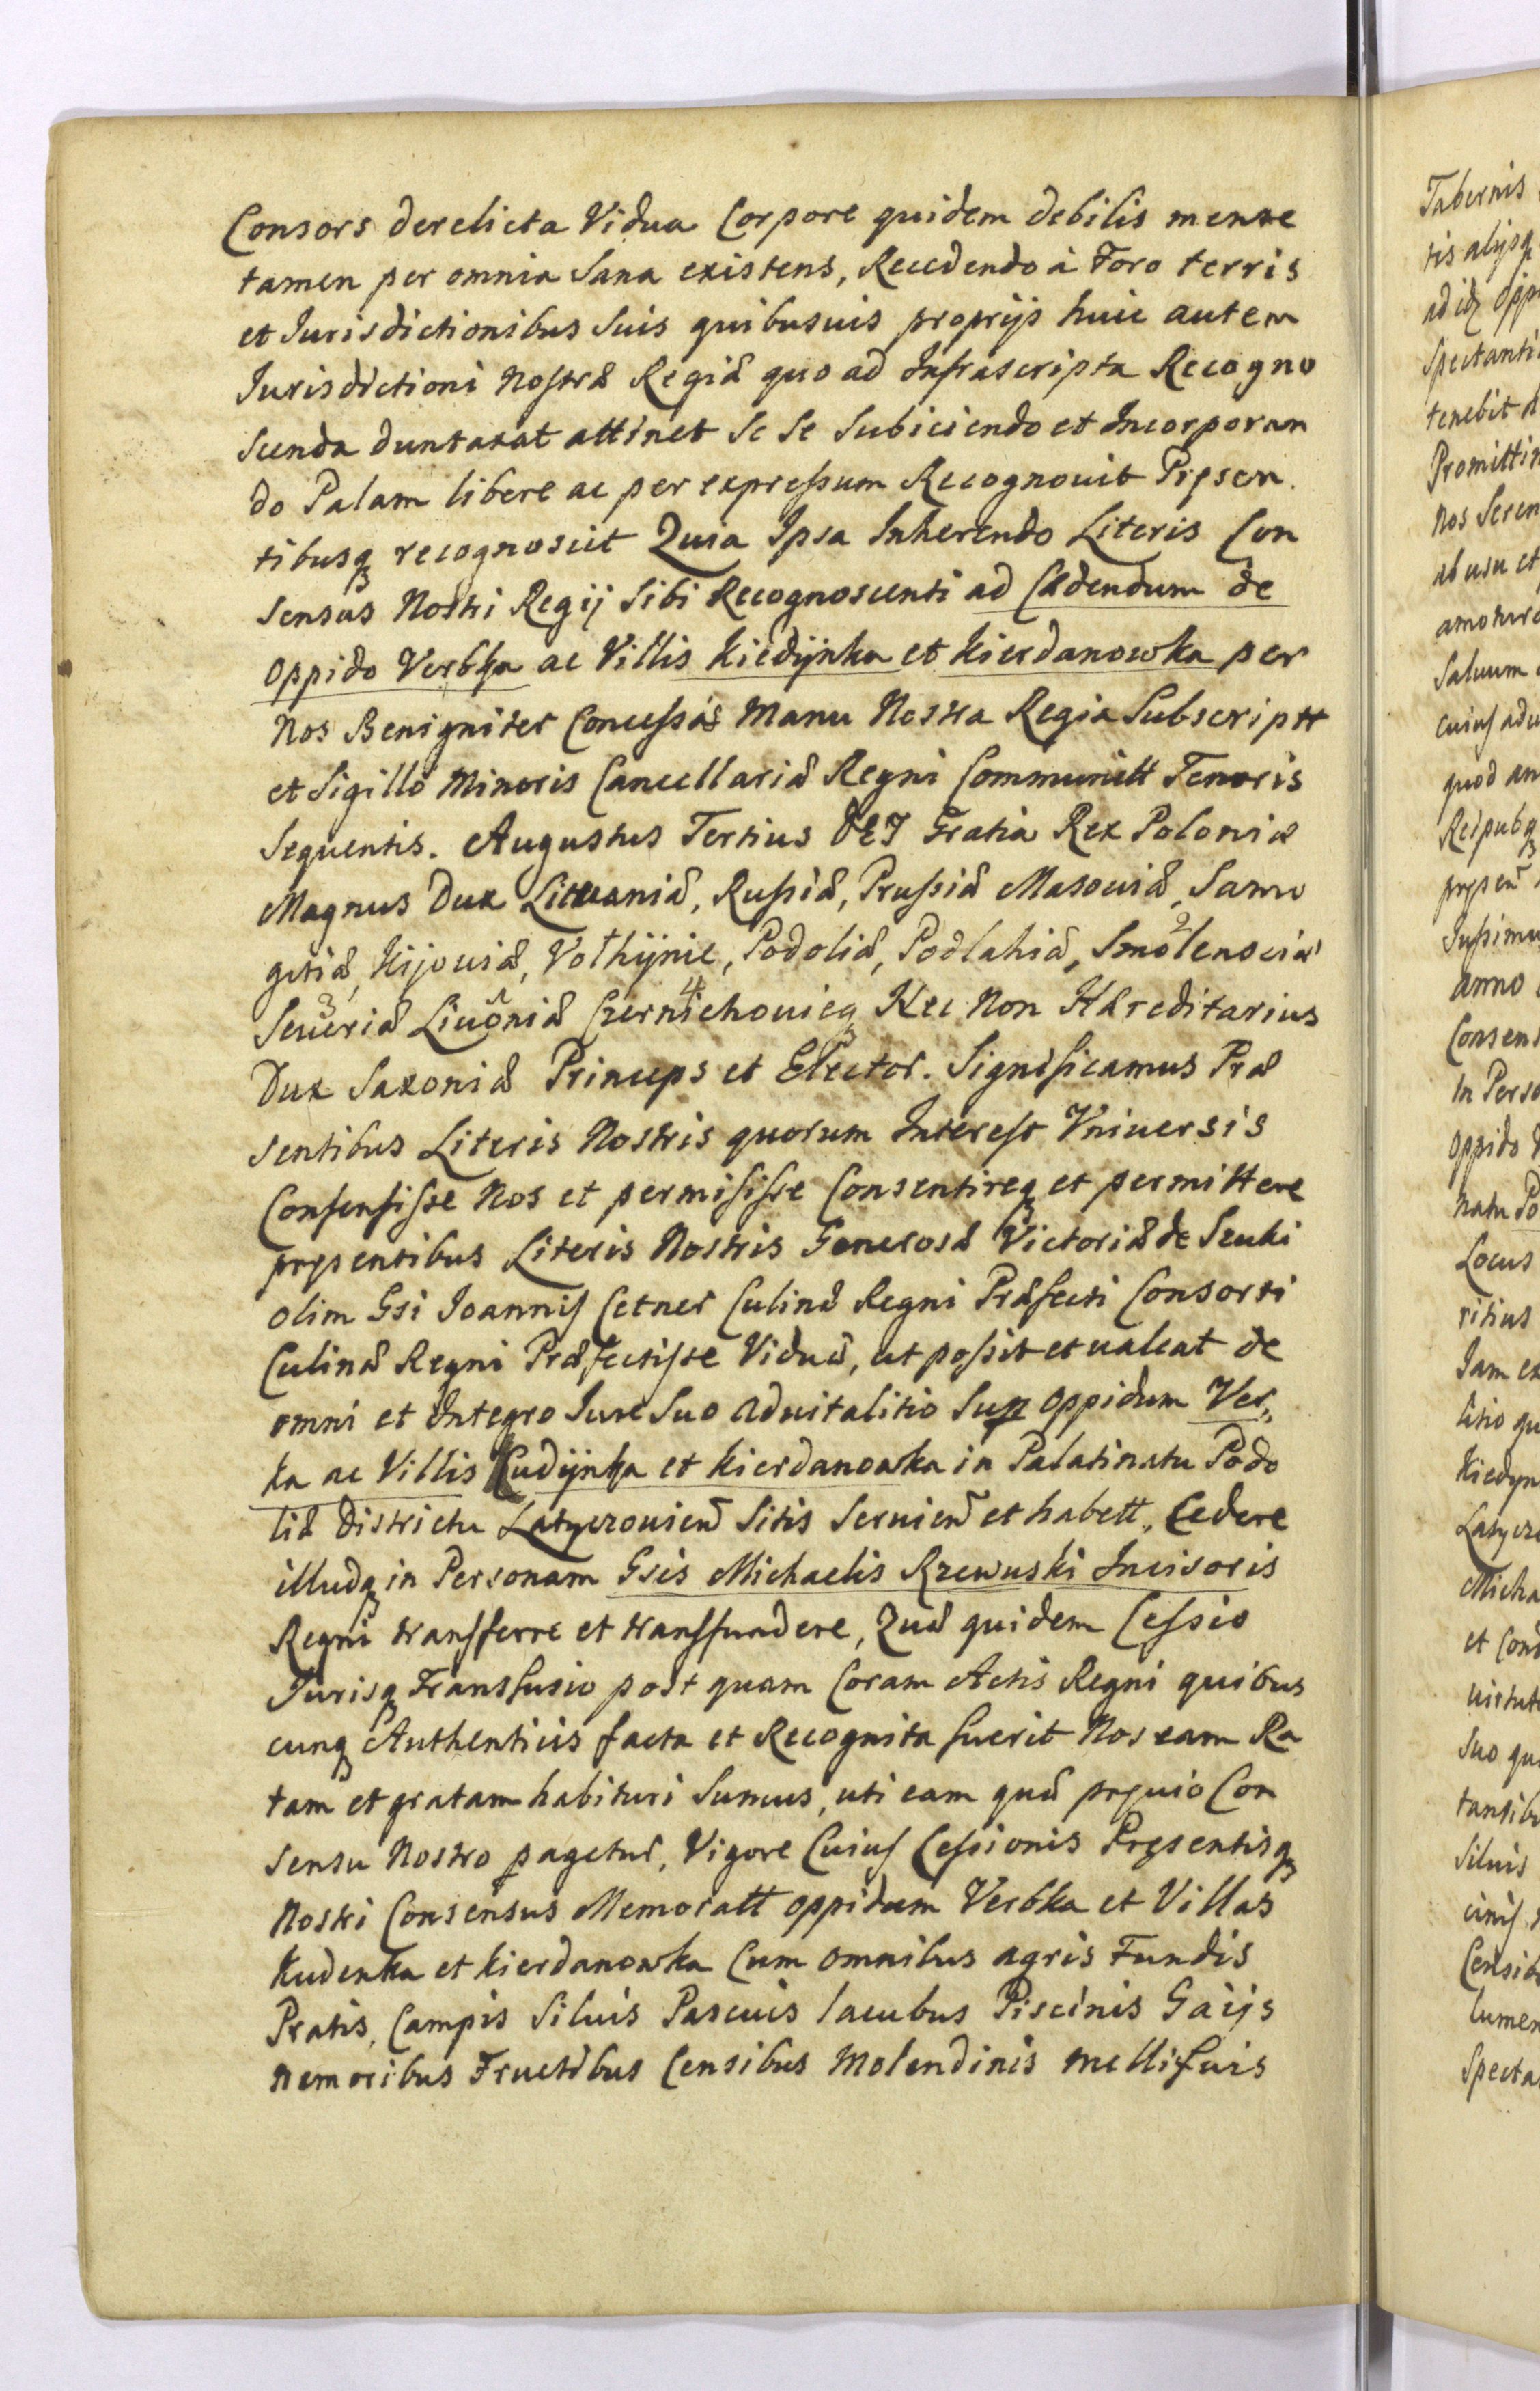 Consors derelicta Vidua Corpore quidem debilis mente
tamen per omnia Sana existens, Recedendo à Foro terris
et Jurisdictionibus Suis quibusuis proprijs huic autem
Jurisdictioni Nostræ Regiæ quo ad Infrascripta Recogno
scenda duntaxat attinet Se Se Subiciendo et Incorporan
do Palam libere ac per expressum Recognouit Pręsen
tibusq recognoscit Quia Ipsa Inherendo Literis Con
sensus Nostri Regij Sibi Recognoscenti ad Cædendum de
oppido Verbka ac Villis Kiedÿnka et Kierdanowka per
Nos Benigniter Concessis Manu Nostra Regia Subscriptt
et Sigillo Minoris Cancellariæ Regni Communitt Tenoris
Sequentis. Augustus Tertius DEI Gratia Rex Poloniæ
Magnus Dux Lituaniæ, Russiæ, Prussiæ Masouiæ, Samo
gitiæ, Kijouiæ, Volhÿnie, Podoliæ, Podlahiæ, Smolensciæ
Seueriæ Liuoniæ Czernichouieq Nec Non Hæreditarius
Dux Saxoniæ Princeps et Elector. Significamus Præ
sentibus Literis Nostris quorum Interest Vniuersis
Consensisse Nos et permisisse Consentireq et permittere
pręsentibus Literis Nostris Generosæ Victoriæ de Szuki
olim Gsi Joannis Cetner Culinæ Regni Præfecti Consorti
Culinæ Regni Præfectisse Viduæ, ut possit et ualeat de
omni et Integro Jure Suo aduitalitio Sup oppidum Ver„
ka ac Villis Kudÿnka et Kierdanowka in Palatinatu Podo
liæ Districtu Latyczouien Sitis Seruien et habett, Cedere
illudq in Personam Gsis Michaelis Rzewuski Incisoris
Regni transferre et transfundere, Quæ quidem Cessio
Jurisq Transfusio post quam Coram Actis Regni quibus
cunq Authenticis facta et Recognita fuerit Nos eam Ra
tam et gratam habituri Sumus, uti eam quæ pręuio Con
sensu Nostro pagetur, Vigore Cuius Cessionis Pręsentisq
Nostri Consensus Memoratt oppidum Verbka et Villas
Kudenka et Kierdanowka Cum omnibus agris Fundis
Pratis, Campis Siluis Pascuis lacubus Piscinis Gaijs
Nemoribus Fructibus Censibus Molendinis mellifuis
Tabernis
tis alijsq
ad id oppi
Spectanti
tenebit
Promittim
Nos Seren
ab usu et
amoture
Saluum
cuius adu
quod an
Reipubq
pręsen
Jussimus
anno
Consens
in Perso
oppido
natu Po
Locus
ritius
Jam ex
litio qu
Kiedyn
Latycz
Micha
et Cond
uirtute
Suo qu
tantibu
Siluis
cinis
Censib
lumen
Specta